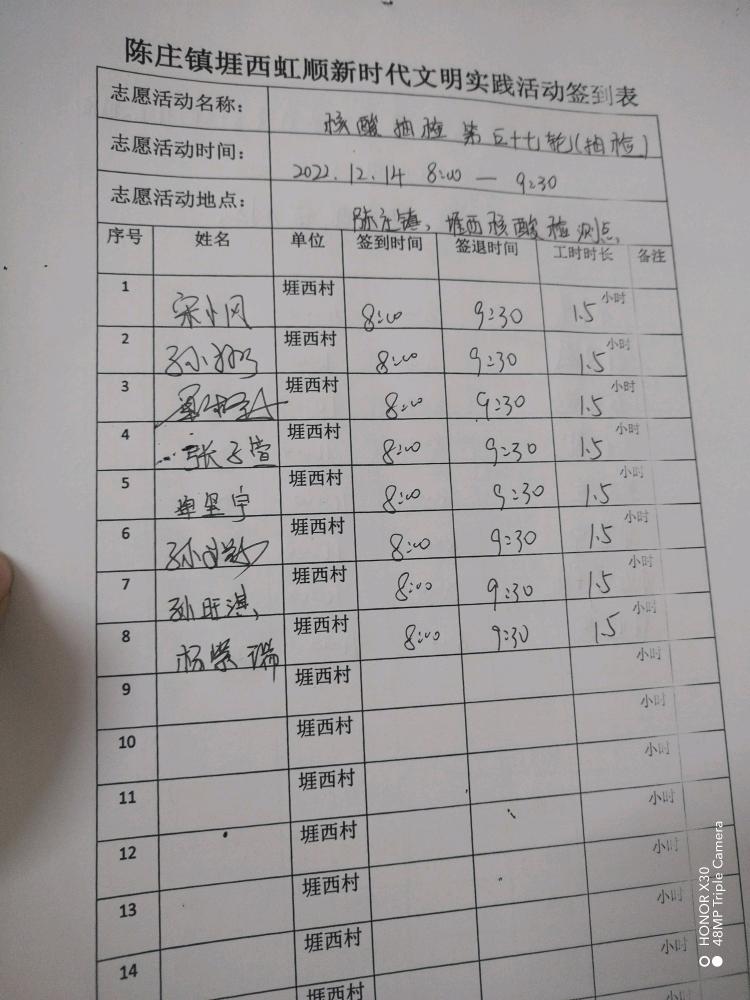 陈庄镇堐西虹顺新时代文明实践活动签到表
志愿活动名称： 核酸抽检第五十七轮(抽检)
志愿活动时间： 2022.12.14 8:00 — 9:30
志愿活动地点： 陈庄镇、堐西核酸检测点
序号 姓名 单位 签到时间 签退时间 工时时长 备注
1 堐西村 8:00 9:30 1.5 小时
2 堐西村 8:00 9:30 1.5 小时
3 堐西村 8:00 9:30 1.5 小时
4 张子萱 堐西村 8:00 9:30 1.5 小时
5 堐西村 8:00 9:30 1.5 小时
6 堐西村 8:00 9:30 1.5 小时
7 堐西村 8:00 9:30 1.5 小时
8 杨紫瑞 堐西村 8:00 9:30 1.5 小时
9 堐西村 小时
10 堐西村 小时
11 堐西村 小时
12 堐西村 小时
13 堐西村 小时
14 堐西村 小时
HONOR X30
48MP Triple Camera